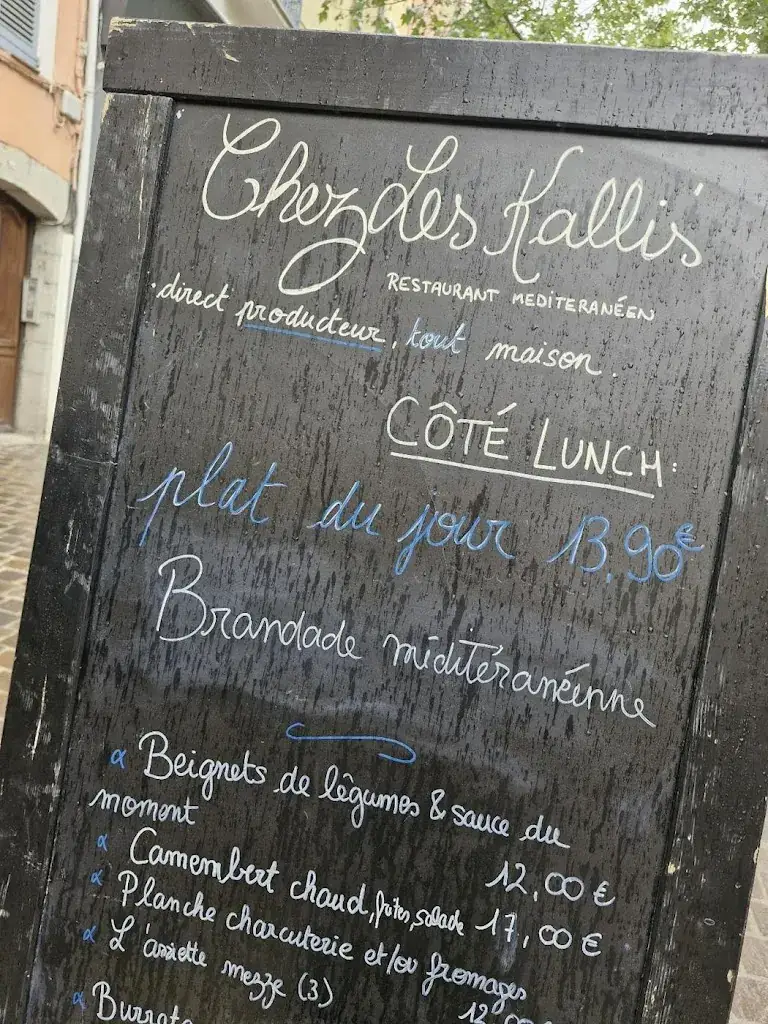 Chez Les Kallis
RESTAURANT MEDITERANÉEN
direct producteur, tout maison.
CÔTÉ LUNCH:
plat du jour 13,90€
Brandade méditéranéenne
Beignets de légumes & sauce du
moment 12,00€
Camembert chaud, frites, salade 17,00€
Planche charcuterie et/ou fromages
L'assiette mezze (3) 12,00
Burrata